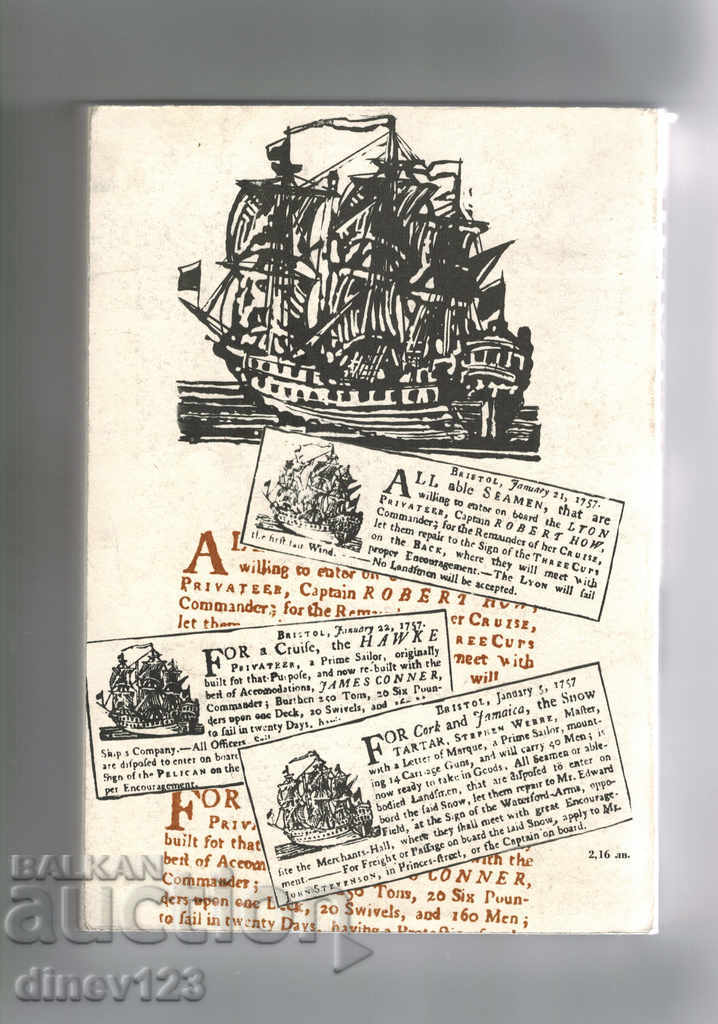 BRISTOL, January 21, 1757.
ALL able SEAMEN, that are
willing to enter on board the LYON
PRIVATEER, Captain ROBERT HOW,
Commander; for the Remainder of her CRUISE,
let them repair to the Sign of the THREE CUPS
on the BACK, where they will meet with
proper Encouragement.—The LYON will sail
the first fair Wind.
No Landsmen will be accepted.
AL
willing to enter on
PRIVATEER, Captain ROBERT HOW,
Commander; for the Rema er CRUISE,
let them REE CUPS
meet with
will
BRISTOL, January 22, 1757.
FOR a Cruise, the HAWKE
PRIVATEER, a Prime Sailor, originally
built for that Purpose, and now re-built with the
best of Accomodations, JAMES CONNER,
Commander; Burthen 250 Tons, 20 Six Poun-
ders upon one Deck, 20 Swivels, and 160
to sail in twenty Days,
Ship's Company.—All Officers,
are disposed to enter on board
Sign of the PELICAN on the
per Encouragement.
BRISTOL, January 5, 1757
FOR Cork and Jamaica, the Snow
TARTAR, STEPHEN WEBBE, Master,
with a Letter of Marque, a Prime Sailor, mount-
ing 14 Carriage Guns, and will carry 40 Men; is
now ready to take in Goods. All Seamen or able-
bodied Landsmen, that are disposed to enter on
bord the said Snow, let them repair to Mr. Edward
Field, at the Sign of the Waterford-Arms, oppo-
site the Merchants-Hall, where they shall meet with great Encourage-
ment.—For Freight or Passage on board the said Snow, apply to Mr.
JOHN STEVENSON, in Princes-street, or the Captain on board.
FOR
PRIV
built for that
best of Accom with the
Commander; CONNER,
ders upon one Deck, 250 Tons, 20 Six Poun-
20 Swivels, and 160 Men;
to sail in twenty Days, having a
2,16 лв.
BALKAN
auction
dinev123